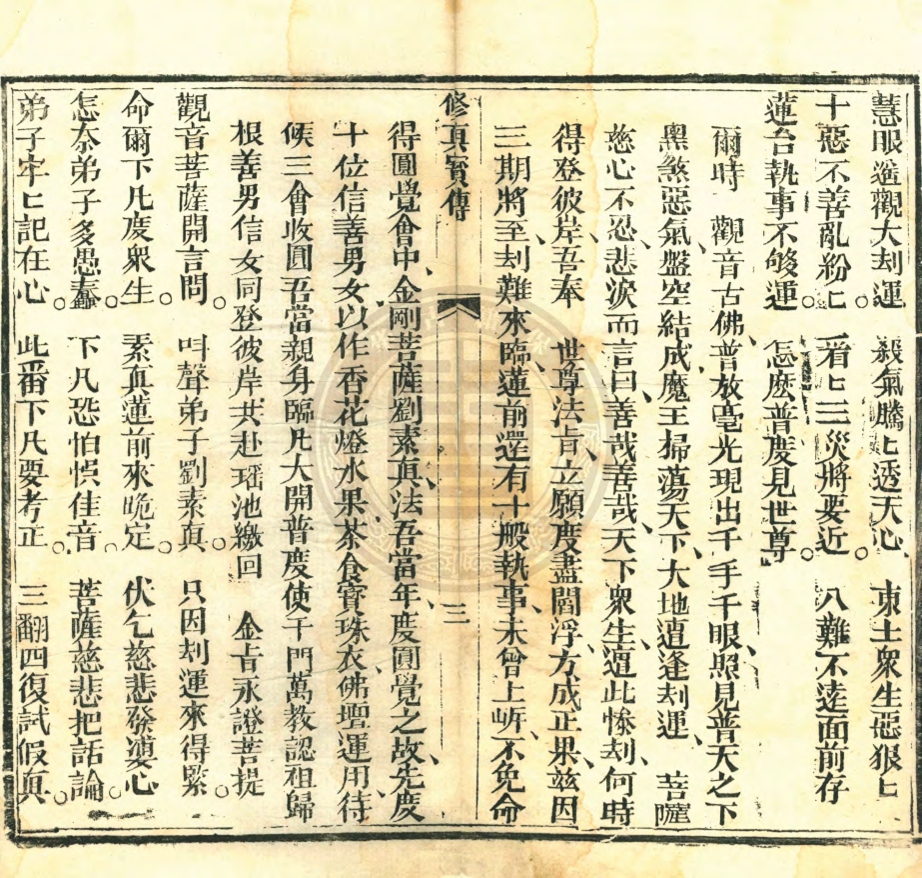 慧眼遙觀大刦運。　殺氣騰匕透天心。　東土眾生惡狠匕
十惡不善亂紛匕　一看匕三災將要近。　八難不遠面前存
蓮台執事不够運。　怎麽普度見世尊
爾時　觀音古佛、普放毫光現出千手千眼、照見普天之下
黑煞惡氣盤空結成魔王掃蕩天下、大地遭逢刦運、　菩薩
慈心不忍、悲淚而言曰、善哉善哉、天下眾生遭此慘刦、何時
得登彼岸、吾奉　世尊法旨、立願度盡閻浮、方成正果、兹因
三期將至、刦難來臨、蓮前還有十般執事、未曾上岍、不免命
修真寶傳　三
得圓覺會中、金剛菩薩劉素真、法吾當年、度圓覺之故、先度
十位信善男女、以作香花燈水果、茶食寳珠衣、佛壇運用、待
候三會收圓、吾當親身臨凡、大開普度、使千門萬教、認祖歸
根、善男信女、同登彼岸、共赴瑶池、繳回　金旨、永證菩提
觀音菩薩開言問。　呌聲弟子劉素真。　只因刦運來得緊。
命爾下凡度眾生。　素真蓮前來跪定　伏乞慈悲發婆心
怎奈弟子多愚蠢。　下凡恐怕悞佳音。　菩薩慈悲把話論。
弟子牢匕記在心　此番下凡要考正　三翻四復試假真。